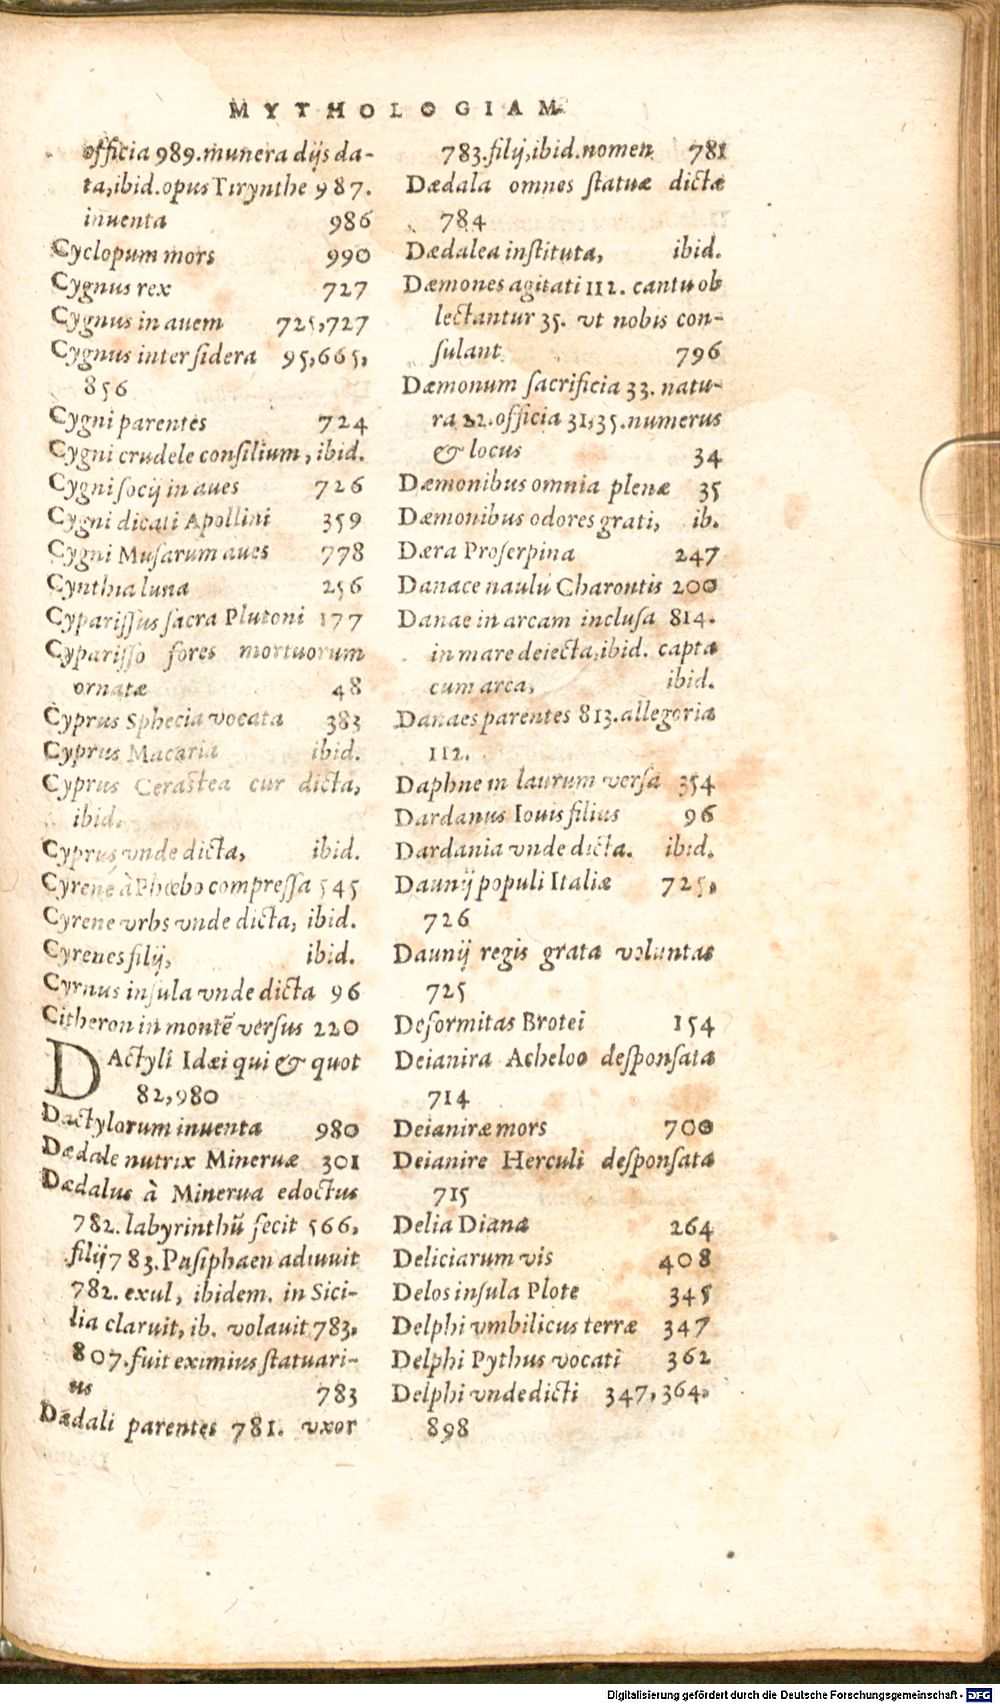 MYTHOLOGIAM
officia 989. munera dijs da-
ta, ibid. opus Tirynthe 987.
inuenta 986
Cyclopum mors 990
Cygnus rex 727
Cygnus in auem 725,727
Cygnus inter sidera 95,665,
856
Cygni parentes 724
Cygni crudele consilium, ibid.
Cygni socij in aues 726
Cygni dicati Apollini 359
Cygni Musarum aues 778
Cynthia luna 256
Cyparissus sacra Plutoni 177
Cyparisso fores mortuorum
ornatæ 48
Cyprus Sphecia vocata 383
Cyprus Macaria ibid.
Cyprus Cerastea cur dicta,
ibid.
Cyprus vnde dicta, ibid.
Cyrene à Phœbo compressa 545
Cyrene vrbs vnde dicta, ibid.
Cyrenes filij, ibid.
Cyrnus insula vnde dicta 96
Citheron in montẽ versus 220
DActyli Idæi qui & quot
82,980
Dactylorum inuenta 980
Dædale nutrix Mineruæ 301
Dædalus à Minerua edoctus
782. labyrinthũ fecit 566,
filij 783. Pasiphaen adiuuit
782. exul, ibidem. in Sici-
lia claruit, ib. volauit 783,
807. fuit eximius statuari-
us 783
Dædali parentes 781. vxor
783. filij, ibid. nomen 781
Dædala omnes statuæ dictæ
784
Dædalea instituta, ibid.
Dæmones agitati 112. cantu ob
lectantur 35. vt nobis con-
sulant 796
Dæmonum sacrificia 33. natu-
ra 22. officia 31,35. numerus
& locus 34
Dæmonibus omnia plenæ 35
Dæmonibus odores grati, ib.
Dæra Proserpina 247
Danace naulũ Charontis 200
Danae in arcam inclusa 814.
in mare deiecta, ibid. capta
cum arca, ibid.
Danaes parentes 813. allegoria
112.
Daphne in laurum versa 354
Dardanus Iouis filius 96
Dardania vnde dicta. ibid.
Daunij populi Italiæ 725,
726
Daunij regis grata voluntas
725
Deformitas Brotei 154
Deianira Acheloo desponsata
714
Deianiræ mors 700
Deianire Herculi desponsata
715
Delia Diana 264
Deliciarum vis 408
Delos insula Plote 345
Delphi vmbilicus terræ 347
Delphi Pythus vocati 362
Delphi vnde dicti 347,364,
898
Digitalisierung gefördert durch die Deutsche Forschungsgemeinschaft - DFG